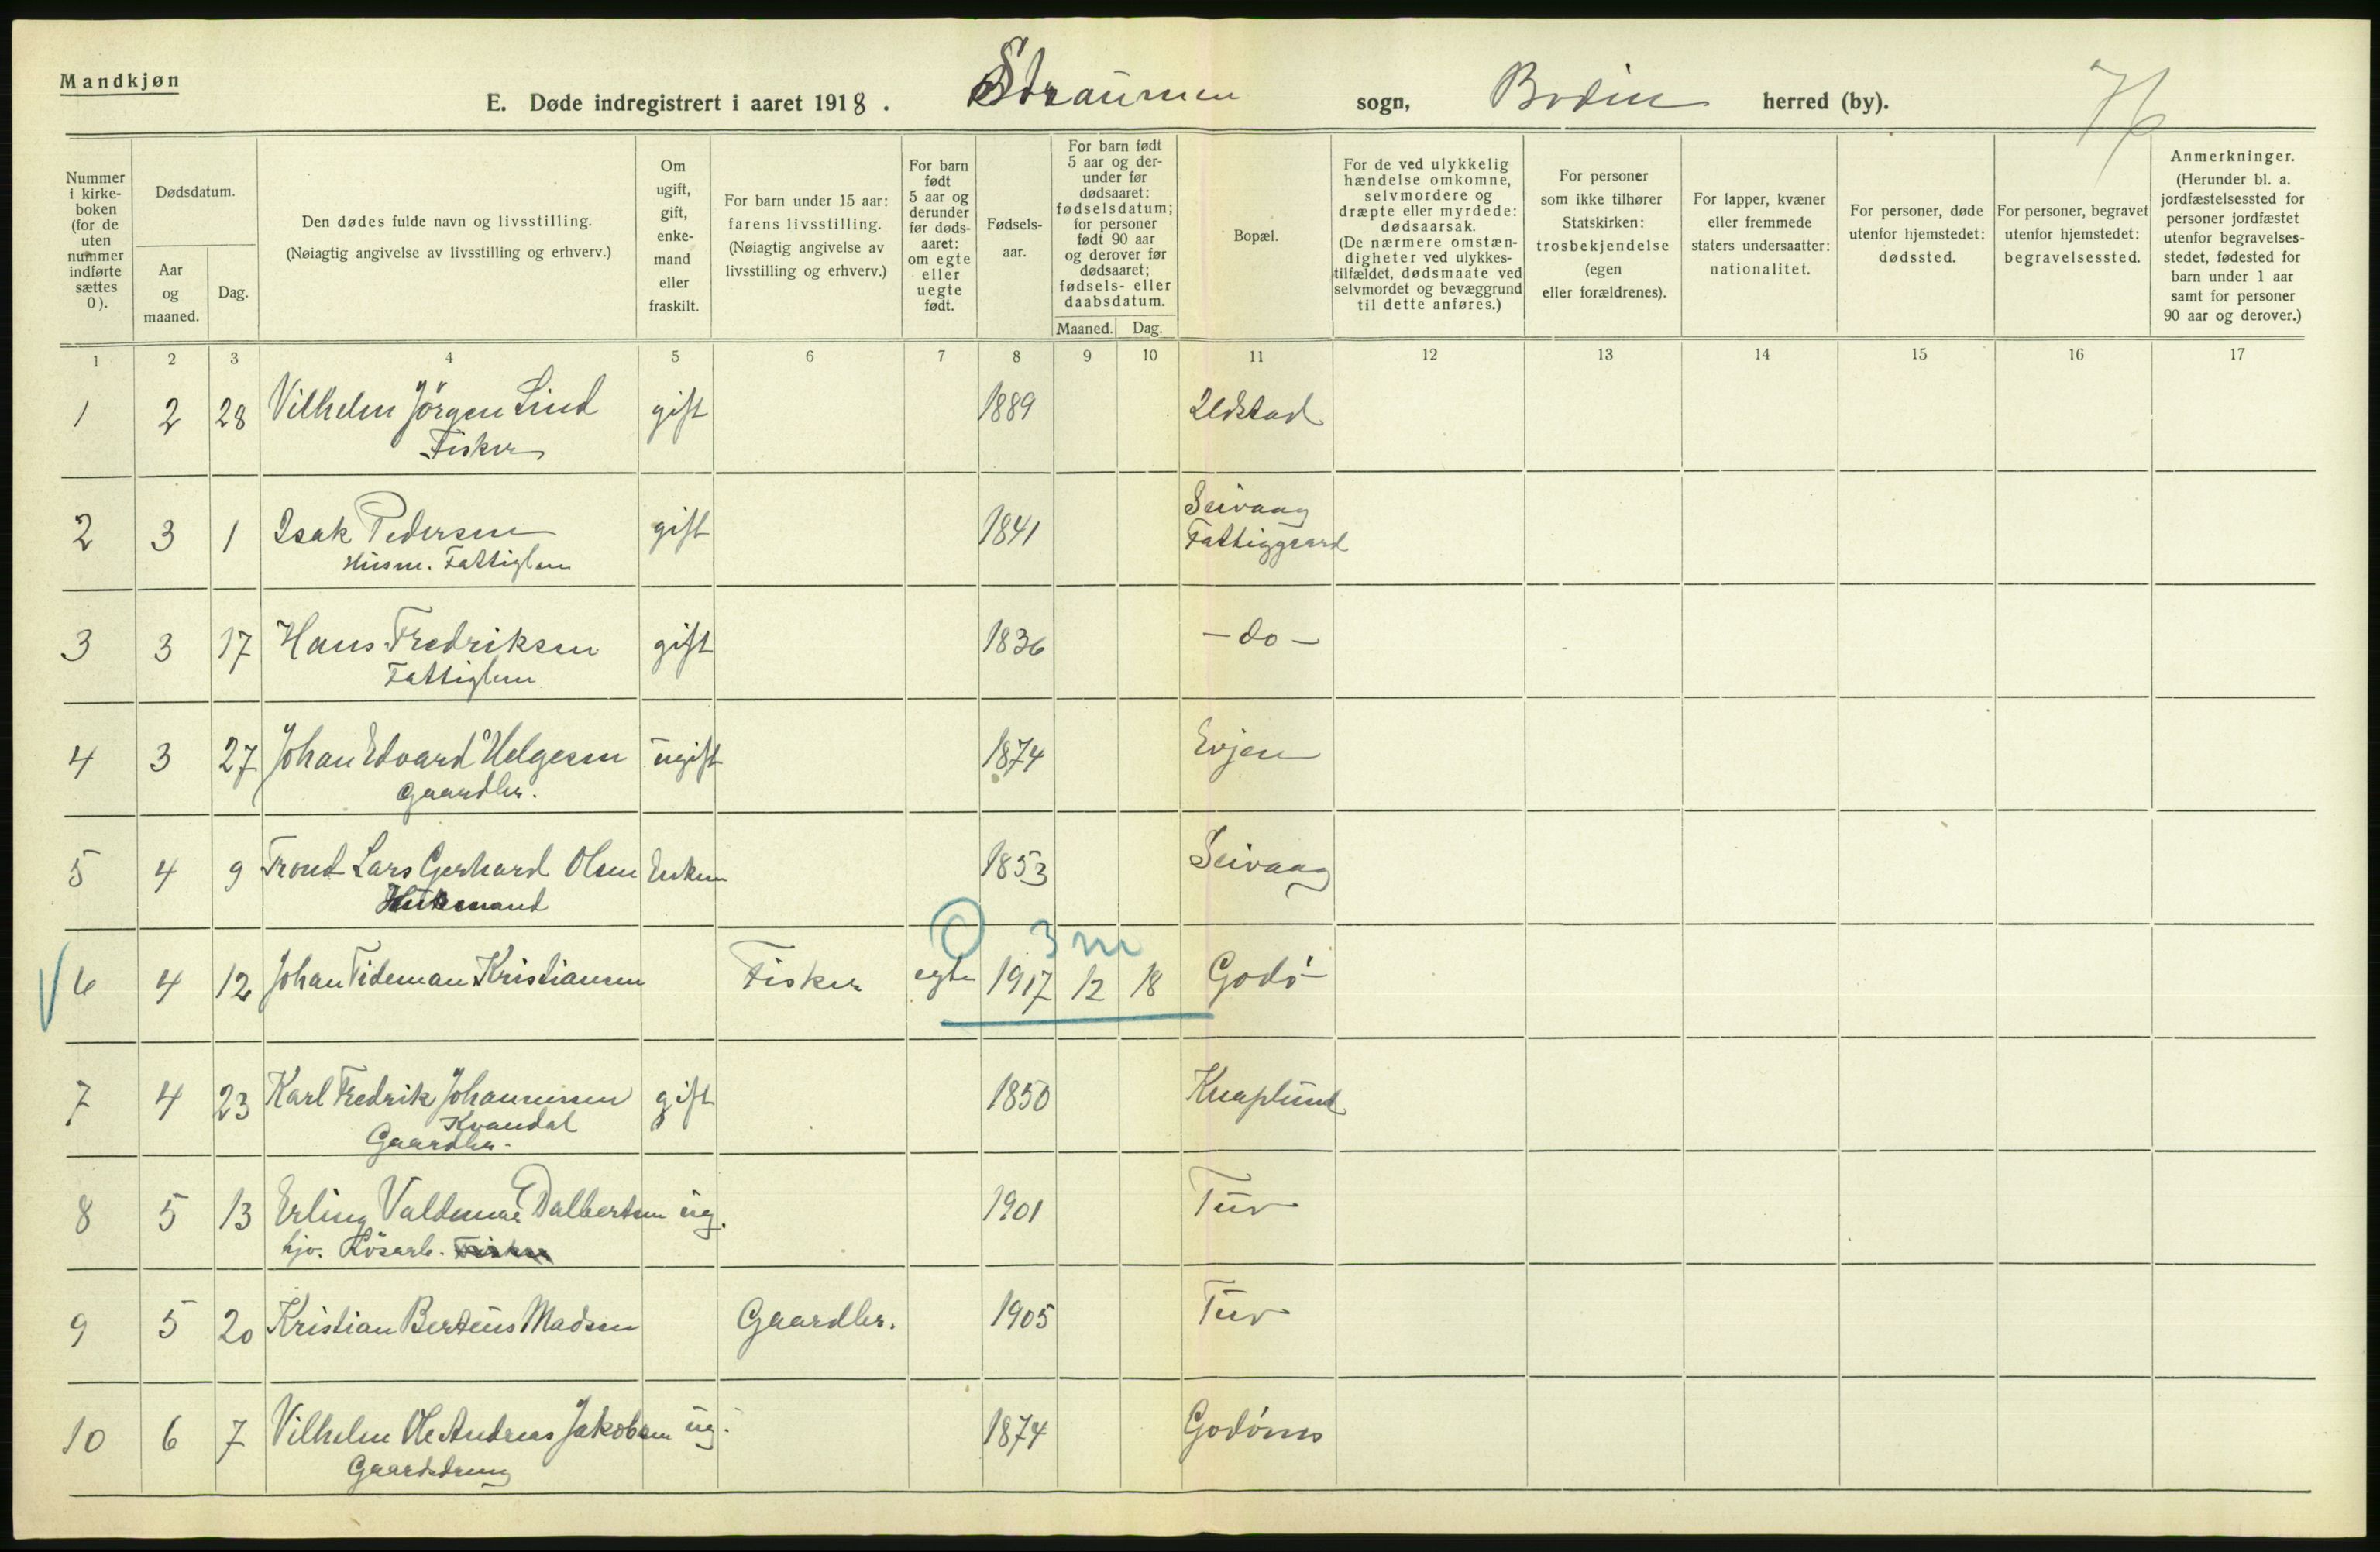 Mandkjøn
E. Døde indregistrert i aaret 1918. Straumen sogn, Bodin herred (by).
76
Nummer i kirke-boken (for de uten nummer indførte sættes 0).
Dødsdatum.
Aar og maaned.
Dag.
Den dødes fulde navn og livsstilling.
(Nøiagtig angivelse av livsstilling og erhverv.)
Om ugift, gift, enke-mand eller fraskilt.
For barn under 15 aar: farens livsstilling. (Nøiagtig angivelse av livsstilling og erhverv.)
For barn født 5 aar og derunder før døds-aaret: om egte eller uegte født.
Fødsels-aar.
For barn født 5 aar og der-under før dødsaaret: fødselsdatum; for personer født 90 aar og derover før dødsaaret; fødsels- eller daabsdatum.
Maaned. Dag.
Bopæl.
For de ved ulykkelig hændelse omkomne, selvmordere og dræpte eller myrdede: dødsaarsak. (De nærmere omstæn-digheter ved ulykkes-tilfældet, dødsmaate ved selvmordet og bevæggrund til dette anføres.)
For personer som ikke tilhører Statskirken: trosbekjendelse (egen eller forældrenes).
For lapper, kvæner eller fremmede staters undersaatter: nationalitet.
For personer, døde utenfor hjemstedet: dødssted.
For personer, begravet utenfor hjemstedet: begravelsessted.
Anmerkninger. (Herunder bl. a. jordfæstelsessted for personer jordfæstet utenfor begravelses-stedet, fødested for barn under 1 aar samt for personer 90 aar og derover.)
1 2 3 4 5 6 7 8 9 10 11 12 13 14 15 16 17
1 2 28 Vilhelm Jörgen Lind gift 1889 Ildstad
Fisker
2 3 1 Isak Pedersen gift 1841 Seivaag
Husm. Fattiglem Fattiggaard
3 3 17 Hans Fredriksen gift 1836 - do -
Fattiglem
4 3 27 Johan Edvard Helgesen ugift 1874 Evjen
Gaardbr.
5 4 9 Trond Lars Gerhard Olsen Enkem 1853 Seivaag
Husmand
3 m
6 4 12 Johan Tideman Kristiansen Fisker egte 1917 12 18 Godö
7 4 23 Karl Fredrik Johannesen gift 1850 Knaplund
Kvandal
Gaardbr.
8 5 13 Erling Valdemar Dalbertsen ug. 1901 Tuv
hjv. Lösarb. Fisker
9 5 20 Kristian Berteus Madsen Gaardbr. 1905 Tuv
10 6 7 Vilhelm Ole Andreas Jakobsen ug. 1874 Godönes
Gaardsdreng